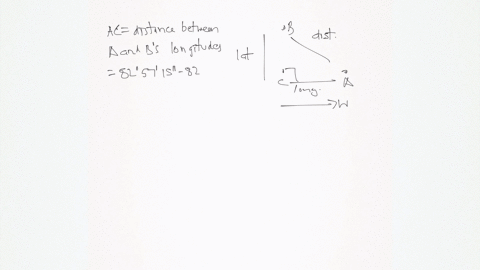 AC = distance between
A and B's longitudes
= 82° 57' 15" - 82
lat
B
dist.
C
A
long.
W